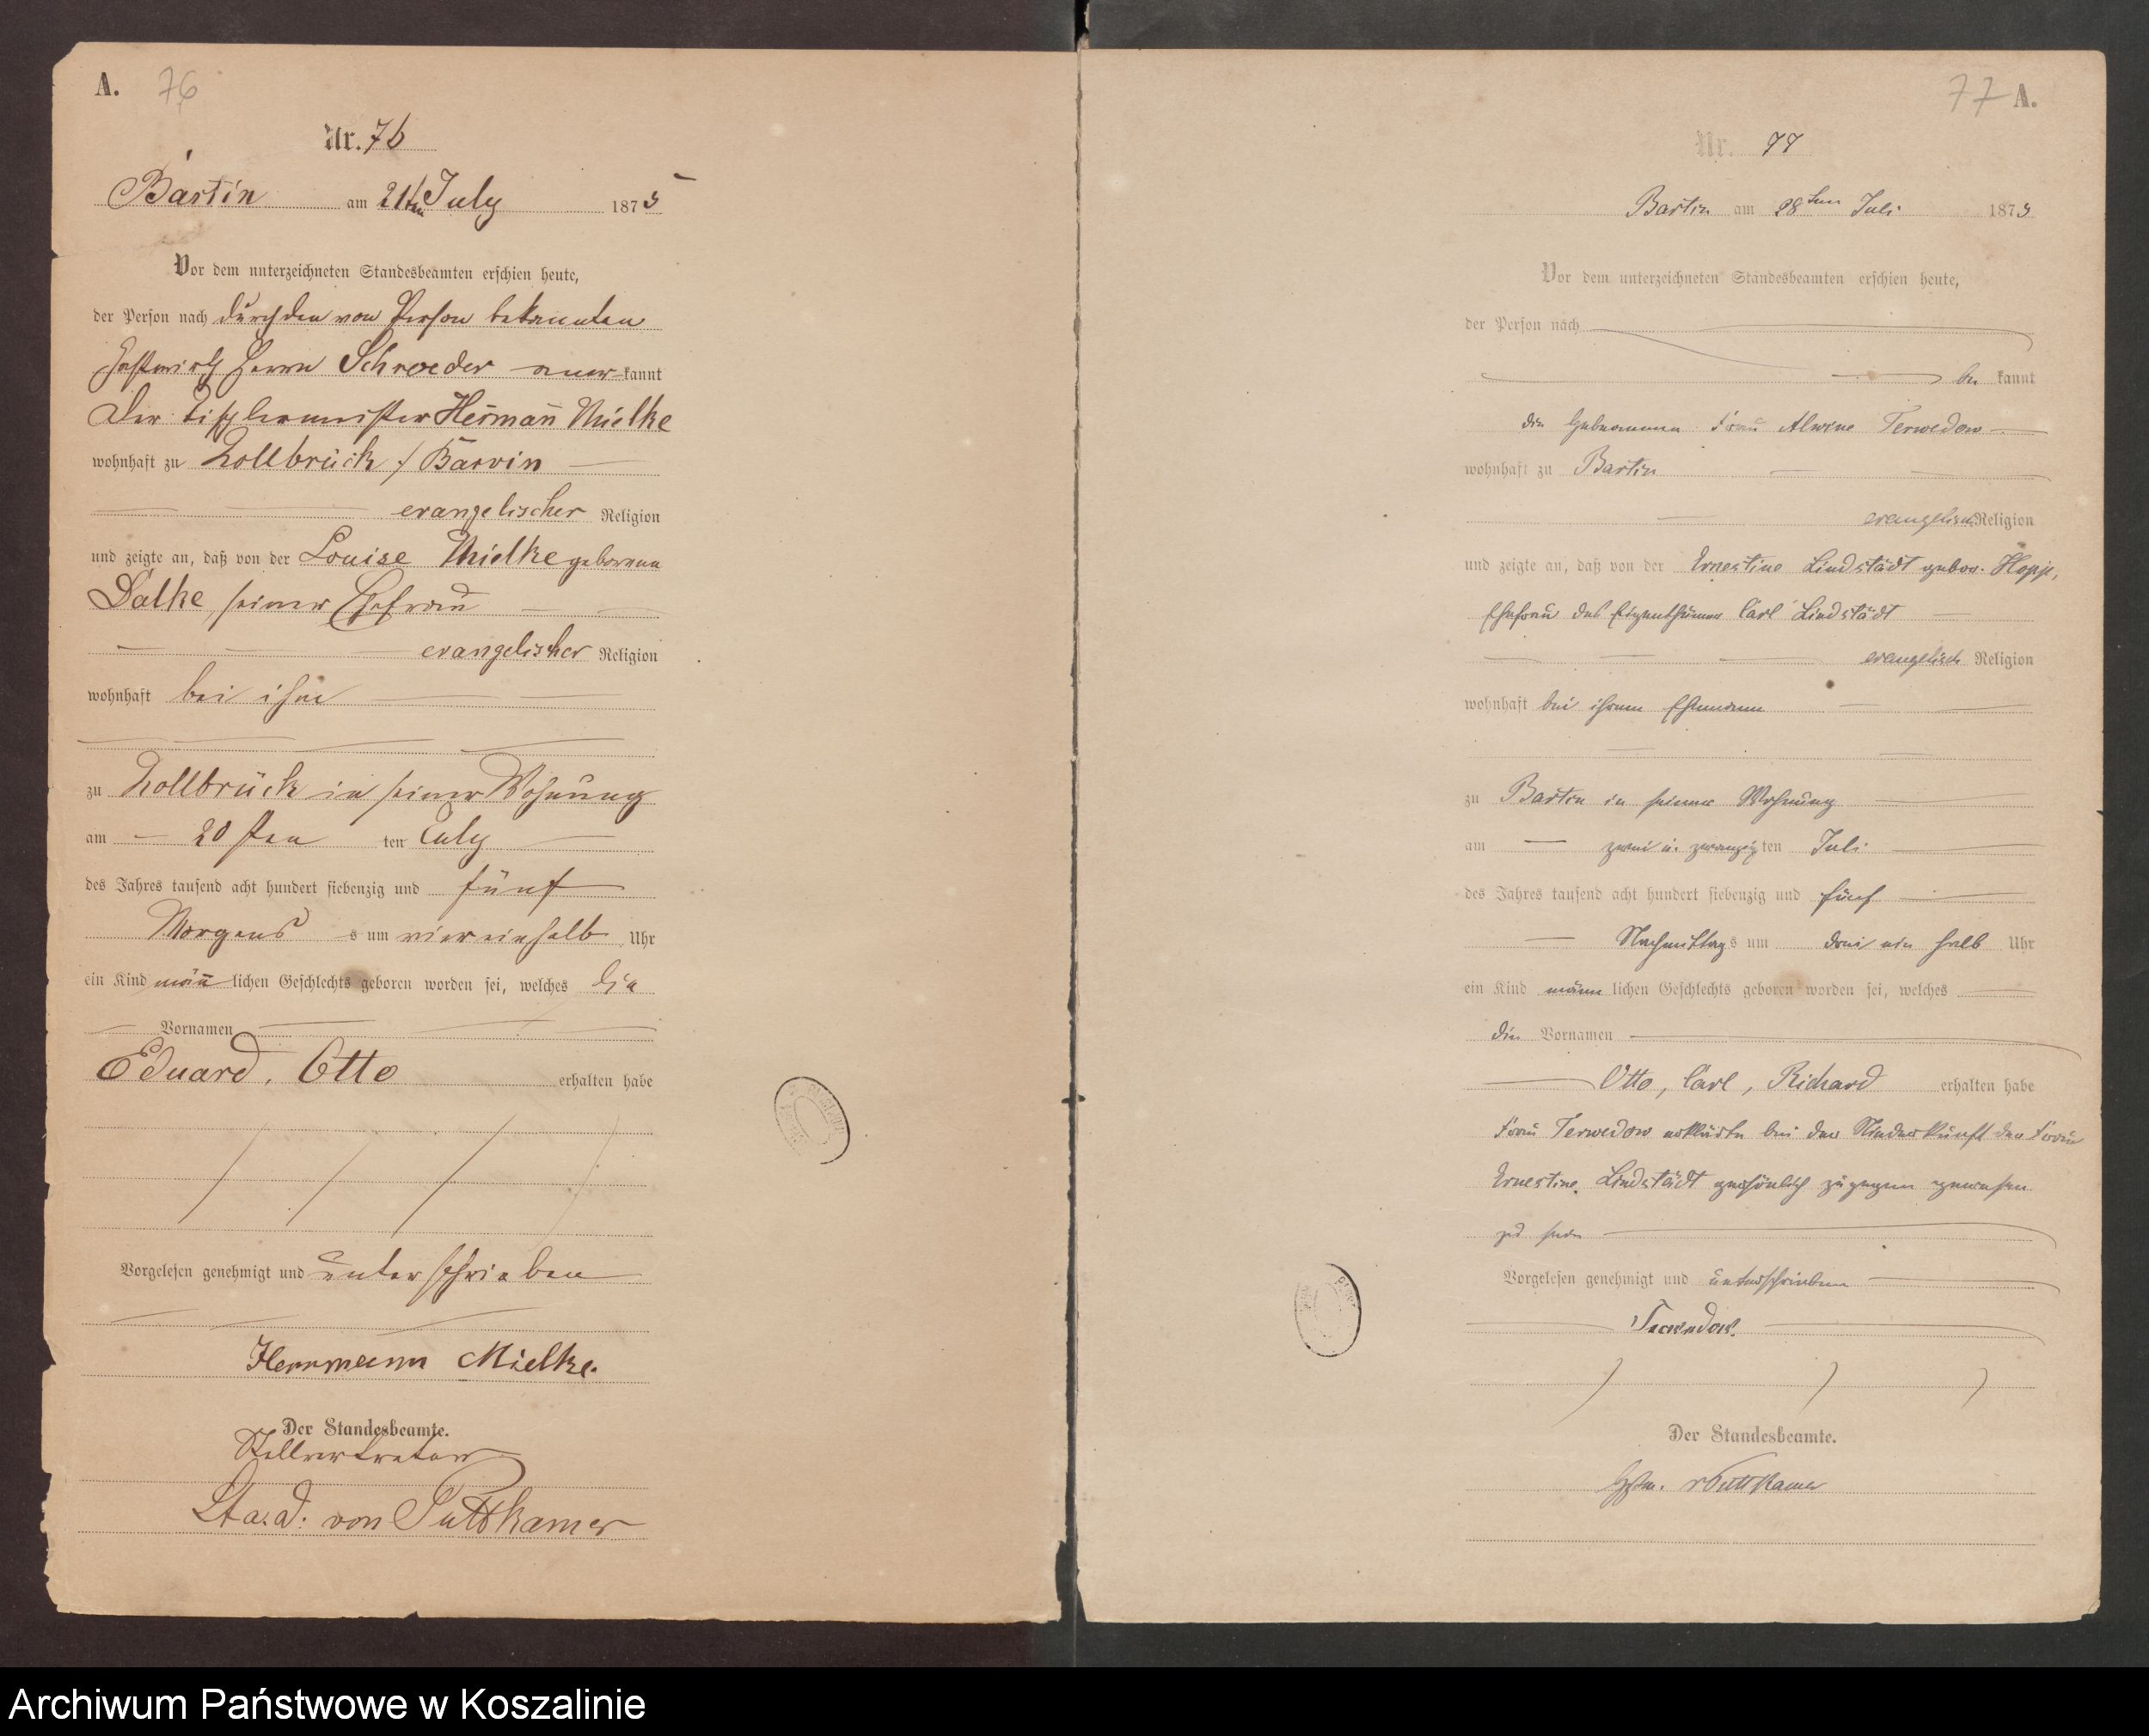 A. 76
Nr. 76
Bartin am 21ten July 1875
Vor dem unterzeichneten Standesbeamten erschien heute,
der Person nach durch den von Person bekannten
Gastwirth Herrn Schroeder aner-kannt
der Tischlermeister Hermann Mielke
wohnhaft zu Zollbrück / Barvin
evangelischer Religion
und zeigte an, daß von der Louise Mielke geborene
Dalke seiner Ehefrau
evangelischer Religion
wohnhaft bei ihm
zu Zollbrück in seiner Wohnung
am 20sten ten July
des Jahres tausend acht hundert siebenzig und fünf
Morgens s um viereinhalb Uhr
ein Kind männlichen Geschlechts geboren worden sei, welches die
Vornamen
Eduard, Otto erhalten habe
Vorgelesen genehmigt und unterschrieben
Herrmann Mielke.
Der Standesbeamte.
Stellvertreter
von Puttkamer
77 A.
Nr. 77
Bartin am 28ten Juli 1875
Vor dem unterzeichneten Standesbeamten erschien heute,
der Person nach
be kannt
die Hebeamme Frau Alwine Terwedow
wohnhaft zu Bartin
evangelisch Religion
und zeigte an, daß von der Ernestine Lindstädt gebor. Hopp,
Ehefrau des Eigenthümer Carl Lindstädt
evangelisch Religion
wohnhaft bei ihrem Ehemann
zu Bartin in seiner Wohnung
am zwei u. zwanzigten Juli
des Jahres tausend acht hundert siebenzig und fünf
Nachmittags um drei ein halb Uhr
ein Kind männlichen Geschlechts geboren worden sei, welches
die Vornamen
Otto, Carl, Richard erhalten habe
Frau Terwedow erklärte bei der Niederkunft der Frau
Ernestine Lindstädt persönlich zugegen gewesen
zu sein
Vorgelesen genehmigt und unterschrieben
Terwedow.
Der Standesbeamte.
v Puttkamer
Archiwum Państwowe w Koszalinie